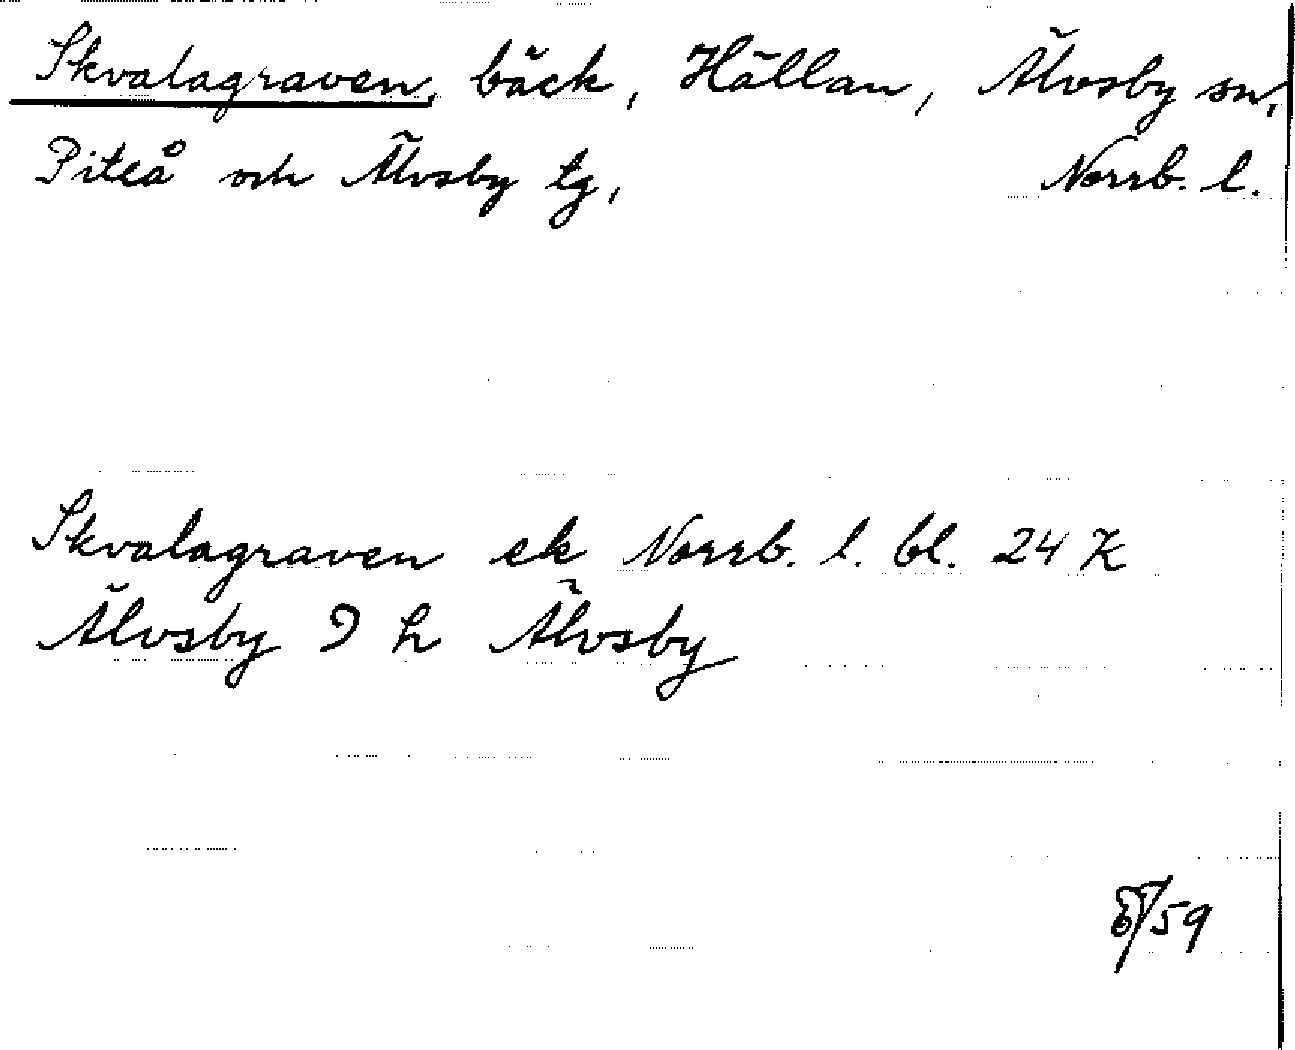 Skvalagraven, bäck, Hällan, Älvsby sn,
Piteå och Älvsby tg, Norrb. l.
Skvalagraven ek Norrb. l. bl. 24 K
Älvsby 9 h Älvsby